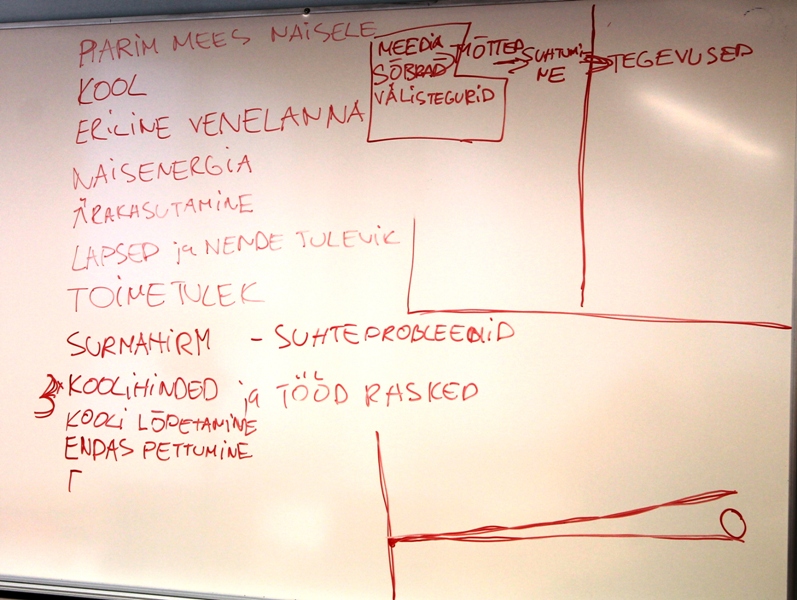 PARIM MEES NAISELE
KOOL
ERILINE VENELANNA
NAISENERGIA
ÄRAKASUTAMINE
LAPSED ja NENDE TULEVIK
TOIMETULEK
SURMAHIRM - SUHTEPROBLEEMID
3x KOOLIHINDED ja TÖÖD RASKED
KOOLI LÕPETAMINE
ENDAS PETTUMINE
MEEDIA
SÕBRAD
VÄLISTEGURID
MÕTTED
SUHTUMI
NE
TEGEVUSED